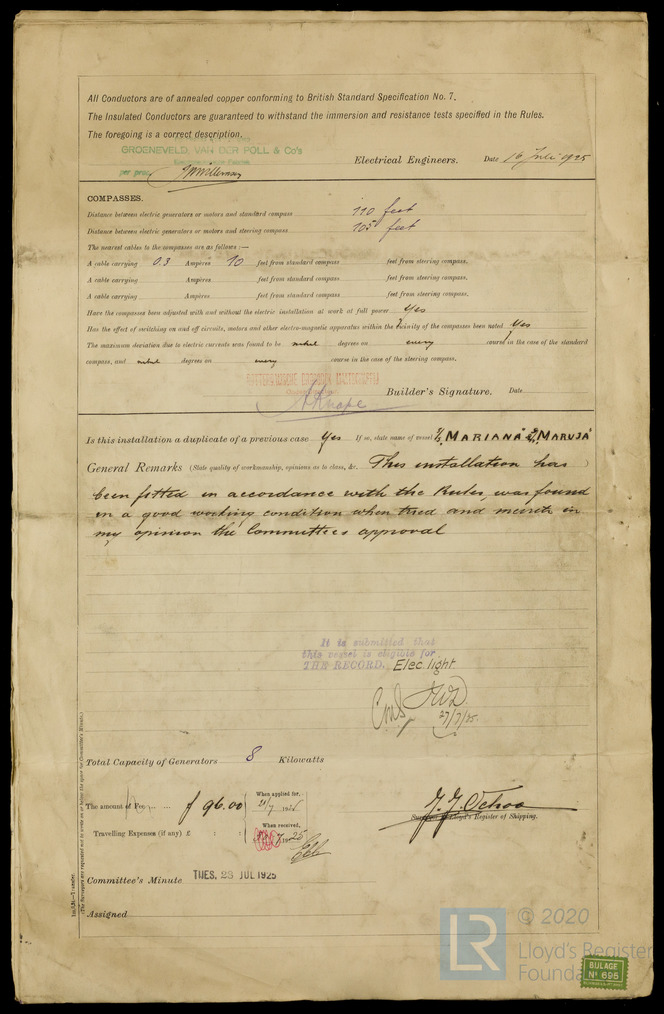 All Conductors are of annealed copper conforming to British Standard Specification No. 7.
The Insulated Conductors are guaranteed to withstand the immersion and resistance tests specified in the Rules.
The foregoing is a correct description.
GROENEVELD, VAN DER POLL & Co's
per proc.
Electrical Engineers. Date 16 Juli 1925
COMPASSES.
Distance between electric generators or motors and standard compass 110 feet
Distance between electric generators or motors and steering compass 105 feet
The nearest cables to the compasses are as follows:—
A cable carrying 0.3 Ampères 10 feet from standard compass feet from steering compass.
A cable carrying Ampères feet from standard compass feet from steering compass.
A cable carrying Ampères feet from standard compass feet from steering compass.
Have the compasses been adjusted with and without the electric installation at work at full power Yes
Has the effect of switching on and off circuits, motors and other electro-magnetic apparatus within the vicinity of the compasses been noted Yes
The maximum deviation due to electric currents was found to be nihil degrees on every course in the case of the standard
compass, and nihil degrees on every course in the case of the steering compass.
Builder's Signature. Date
Is this installation a duplicate of a previous case Yes If so, state name of vessel "MARIANA" & "MARUJA"
General Remarks (State quality of workmanship, opinions as to class, &c. This installation has )
been fitted in accordance with the Rules, was found
in a good working condition when tried and merits in
my opinion the Committees approval
It is submitted that
this vessel is eligible for
THE RECORD. Elec. light
27/7/25.
Total Capacity of Generators 8 Kilowatts
The amount of Fee ... f 96.00
When applied for,
Travelling Expenses (if any) £ : :
When received,
J. J. Ochoa
Surveyor to Lloyd's Register of Shipping.
Committee's Minute TUES. 28 JUL 1925
Assigned
(The Surveyors are requested not to write on or below the space for Committee's Minute.)
© 2020
LR
Lloyd's Register
Foundation
BULAGE
Nº 695